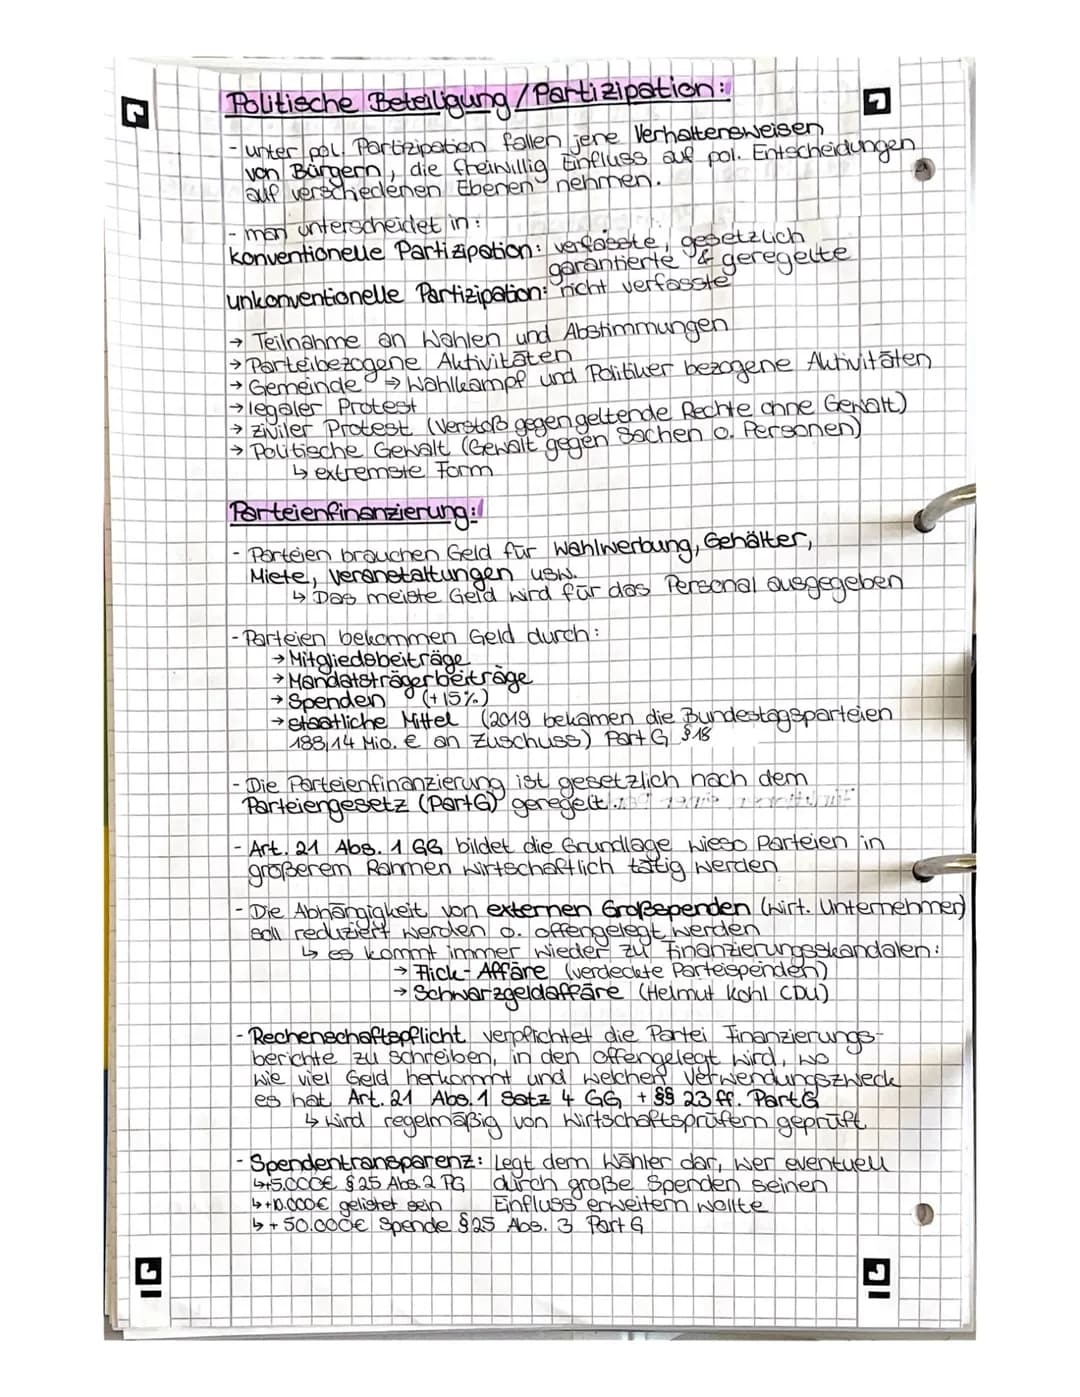 Politische Beteiligung/Partizipation:
- unter pol. Partizipation fallen jene Verhaltensweisen
von Bürgern, die freiwillig Einfluss auf pol. Entscheidungen
auf verschiedenen Ebenen nehmen.
- man unterscheidet in:
konventionelle Partizipation: verfasste, gesetzlich
garantierte & geregelte
unkonventionelle Partizipation: nicht verfasste
→ Teilnahme an Wahlen und Abstimmungen
→ Parteibezogene Aktivitäten
→ Gemeinde → Wahlkampf und Politiker bezogene Aktivitäten
→ legaler Protest
→ ziviler Protest (Verstoß gegen geltende Rechte ohne Gewalt)
→ Politische Gewalt (Gewalt gegen Sachen o. Personen)
↳ extremste Form
Parteienfinanzierung:
- Parteien brauchen Geld für Wahlwerbung, Gehälter,
Miete, Veranstaltungen usw.
↳ Das meiste Geld wird für das Personal ausgegeben
- Parteien bekommen Geld durch:
→ Mitgliedsbeiträge
→ Mandatsträgerbeiträge
→ Spenden (+15%)
→ staatliche Mittel (2019 bekamen die Bundestagsparteien
183,14 Mio. € an Zuschuss) PartG §18
- Die Parteienfinanzierung ist gesetzlich nach dem
Parteiengesetz (PartG) geregelt.
- Art. 21 Abs. 1 GG bildet die Grundlage wieso Parteien in
größerem Rahmen wirtschaftlich tätig werden
- Die Abhängigkeit von externen Großspenden (wirt. Unternehmen)
soll reduziert werden o. offengelegt werden
↳ es kommt immer wieder zu Finanzierungsskandalen:
→ Flick-Affäre (verdeckte Parteispenden)
→ Schwarzgeldaffäre (Helmut Kohl CDU)
- Rechenschaftspflicht verpflichtet die Partei Finanzierungs-
berichte zu schreiben, in den offengelegt wird, wo
wie viel Geld herkommt und welchen Verwendungszweck
es hat Art. 21 Abs. 1 Satz 4 GG + §§ 23 ff. PartG
↳ wird regelmäßig von Wirtschaftsprüfern geprüft
- Spendentransparenz: Legt dem Wähler dar, wer eventuell
↳ +5.000€ §25 Abs. 2 PG durch große Spenden seinen
↳ +10.000€ gelistet sein Einfluss erweitern wollte
↳ + 50.000€ Spende §25 Abs. 3 PartG